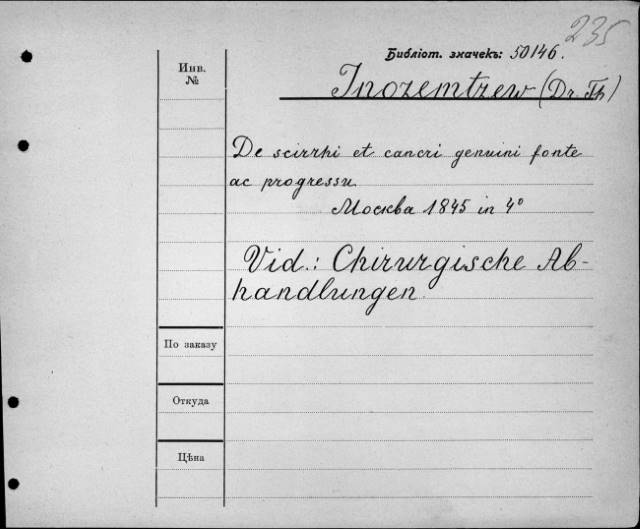 235
Библіот. значекъ: 50146.
Инв.
№
Inozemtzew (Dr. Th)
De scirrhi et cancri genuini fonte
ac progressu
Москва 1845 in 4°
Vid.: Chirurgische Ab-
handlungen.
По заказу
Откуда
Цѣна